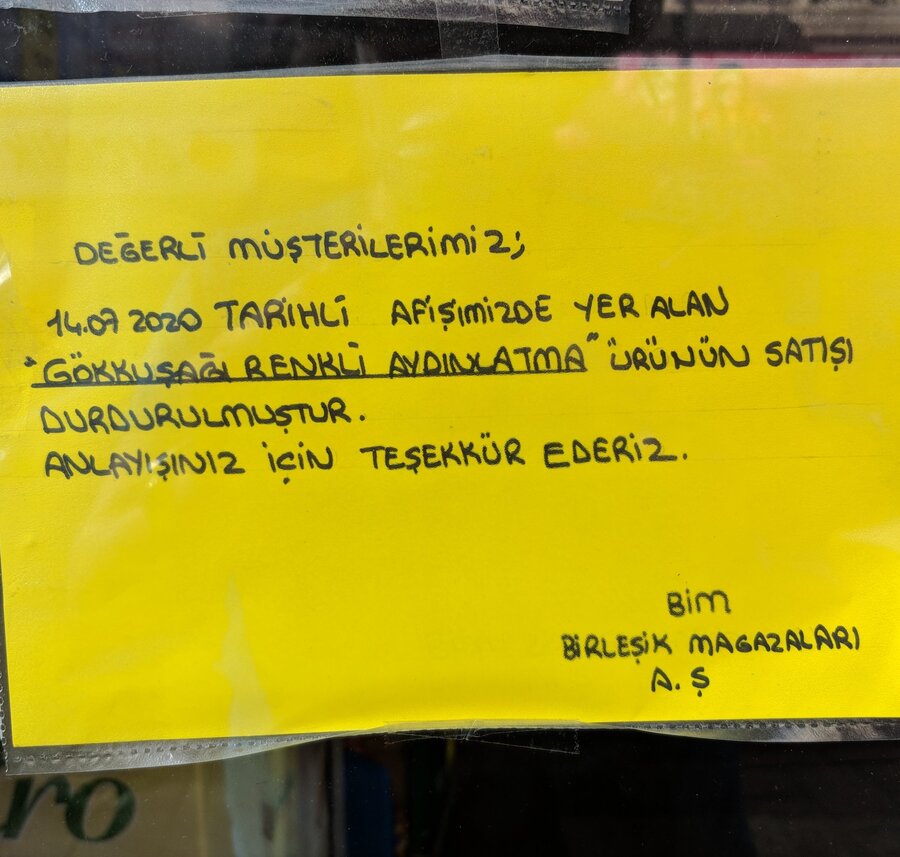 DEĞERLİ MÜŞTERİLERİMİZ;
14.07 2020 TARİHLİ AFİŞİMİZDE YER ALAN
"GÖKKUŞAĞI RENKLİ AYDINLATMA" ÜRÜNÜN SATIŞI
DURDURULMUŞTUR.
ANLAYIŞINIZ İÇİN TEŞEKKÜR EDERİZ.
BİM
BİRLEŞİK MAGAZALARI
A.Ş
ro